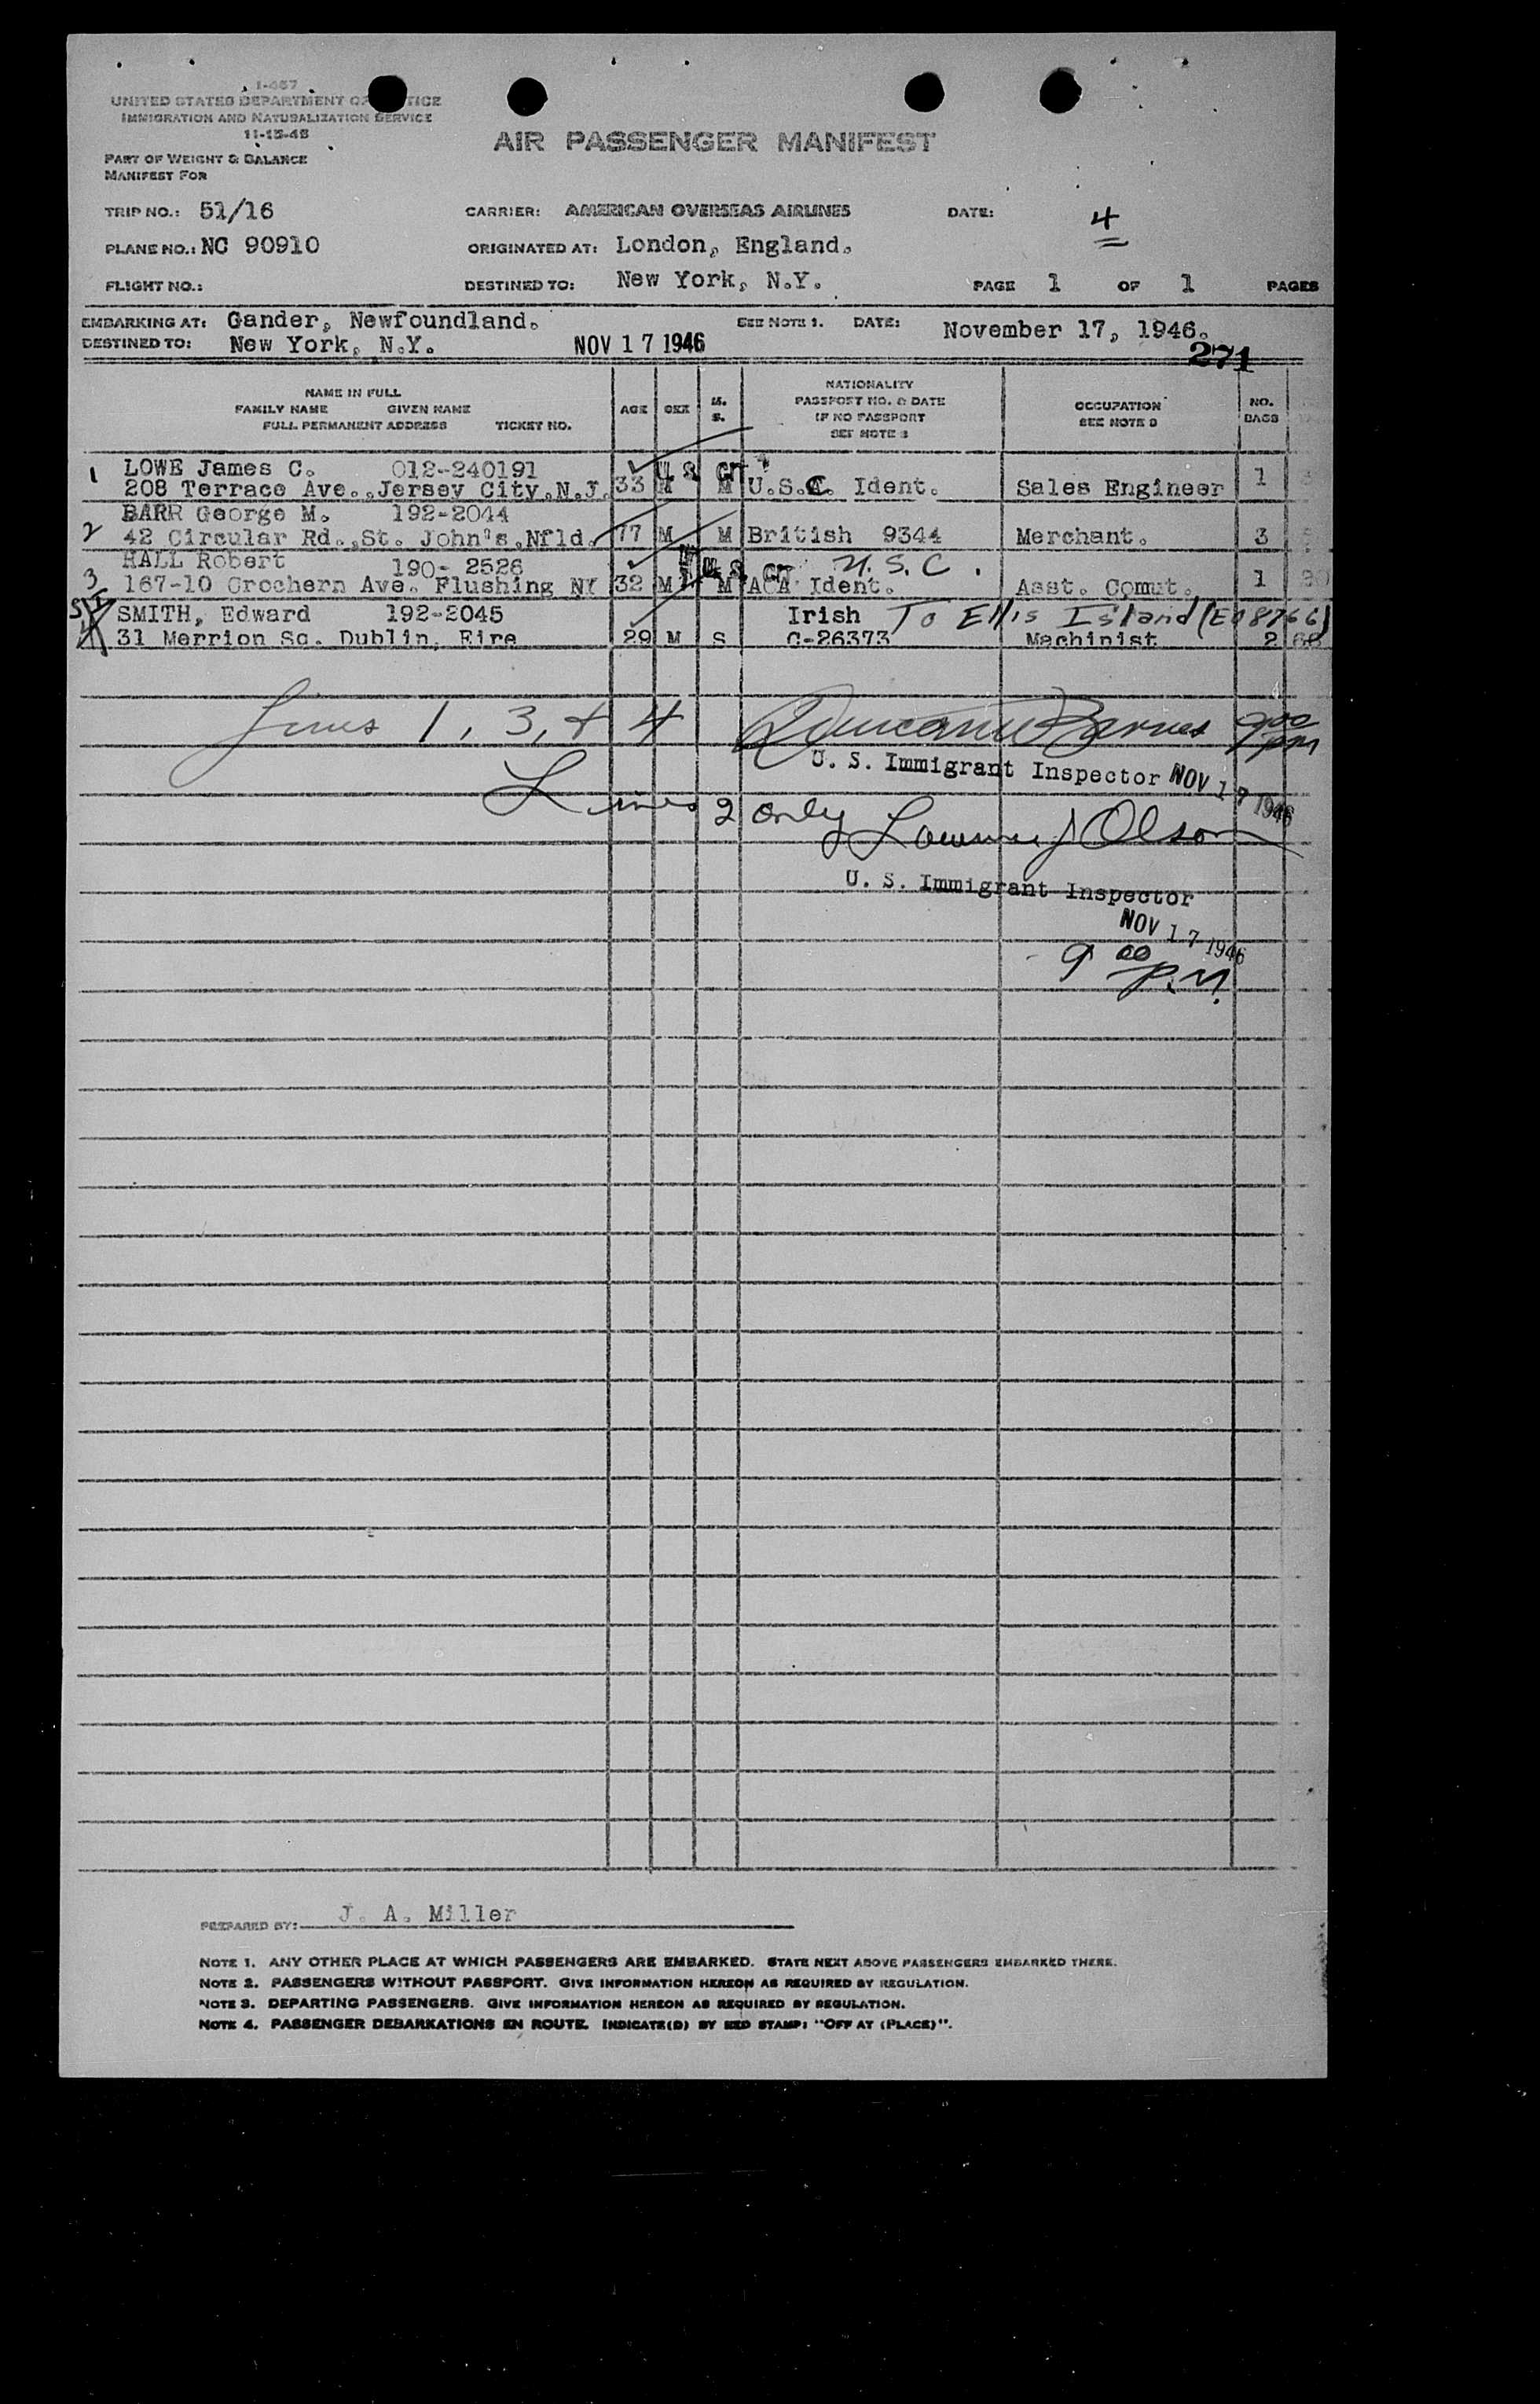 UNITED STATES DEPARTMENT OF
IMMIGRATION AND NATURALIZATION SERVICE
AIR PASSENGER MANIFEST
PART OF WEIGHT & BALANCE
MANIFEST FOR
TRIP NO.: 51/16 CARRIER: AMERICAN OVERSEAS AIRLINES DATE: 4
PLANE NO.: NC 90910 ORIGINATED AT: London, England.
FLIGHT NO.: DESTINED TO: New York, N.Y. PAGE 1 OF 1 PAGES
EMBARKING AT: Gander, Newfoundland. SEE NOTE 1. DATE: November 17, 1946.
DESTINED TO: New York, N.Y. NOV 17 1946 271
NAME IN FULL
FAMILY NAME GIVEN NAME
FULL PERMANENT ADDRESS TICKET NO.
AGE SEX M. S.
NATIONALITY
PASSPORT NO. & DATE
IF NO PASSPORT
SEE NOTE 2
OCCUPATION
SEE NOTE 3
NO.
BAGS
1 LOWE James C. 012-240191 U S
208 Terrace Ave.,Jersey City,N.J. 33 M M U.S.C. Ident. Sales Engineer 1
BARR George M. 192-2044
2 42 Circular Rd.,St. John's,Nfld. 77 M M British 9344 Merchant. 3
HALL Robert 190- 2526 U S U.S.C.
3 167-10 Crochern Ave. Flushing NY 32 M M AOA Ident. Asst. Comut. 1
SMITH, Edward 192-2045 Irish To Ellis Island (E08766)
31 Merrion Sq. Dublin, Eire 29 M S C-26373 Machinist 2 68
Lines 1, 3, & 4 Duncan W Barnes 9 00 pm
U. S. Immigrant Inspector NOV 17 1946
Lines 2 only Olson
U. S. Immigrant Inspector
NOV 17 1946
9 00 P.M.
PREPARED BY: J. A. Miller
NOTE 1. ANY OTHER PLACE AT WHICH PASSENGERS ARE EMBARKED. STATE NEXT ABOVE PASSENGERS EMBARKED THERE.
NOTE 2. PASSENGERS WITHOUT PASSPORT. GIVE INFORMATION HEREON AS REQUIRED BY REGULATION.
NOTE 3. DEPARTING PASSENGERS. GIVE INFORMATION HEREON AS REQUIRED BY REGULATION.
NOTE 4. PASSENGER DEBARKATIONS EN ROUTE. INDICATE(D) BY RED STAMP: "OFF AT (PLACE)".